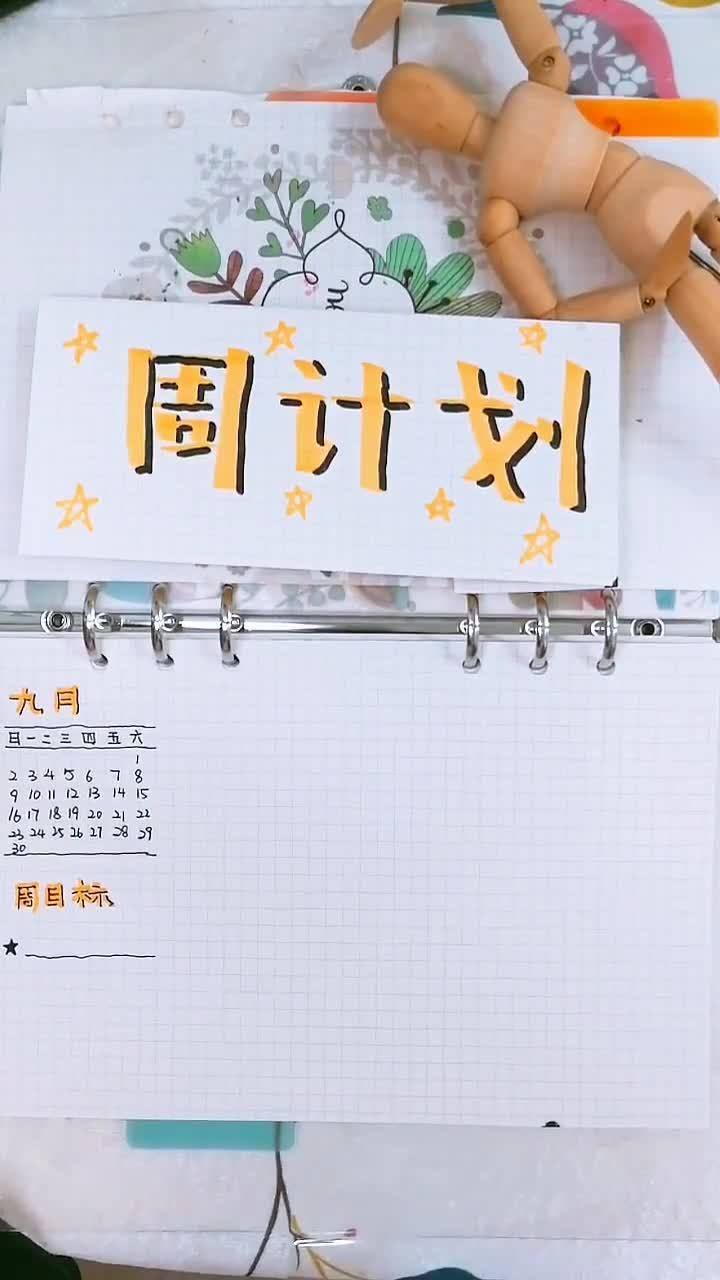 周计划
九月
日 一 二 三 四 五 六
1
2 3 4 5 6 7 8
9 10 11 12 13 14 15
16 17 18 19 20 21 22
23 24 25 26 27 28 29
30
周目标